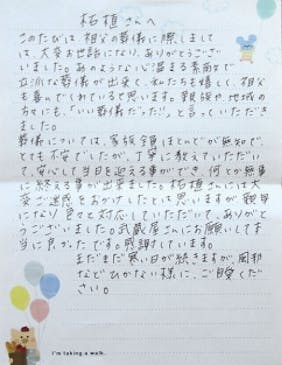 柘植さんへ
このたびは、祖父の葬儀に際しまして
は、大変お世話になり、ありがとうござ
いました。あのような心温まる素敵で
立派な葬儀が出来て、私たちも嬉しく、祖父
も喜んでくれていると思います。親族や地域の
方々にも、「いい葬儀だった」と言っていただき
ました。
葬儀については、家族全員ほとんどが無知で、
とても不安でしたが、丁寧に教えていただいて
、安心して当日を迎える事ができ、何とか無事
に終える事が出来ました。柘植さんには大
変ご迷惑をおかけしたと思いますが、親身
になり色々と対応していただいて、ありがと
うございました。武蔵屋さんにお願いして本
当に良かったです。感謝しています。
まだまだ寒い日が続きますが、風邪
などひかない様に、ご自愛くだ
さい。
I'm taking a walk.